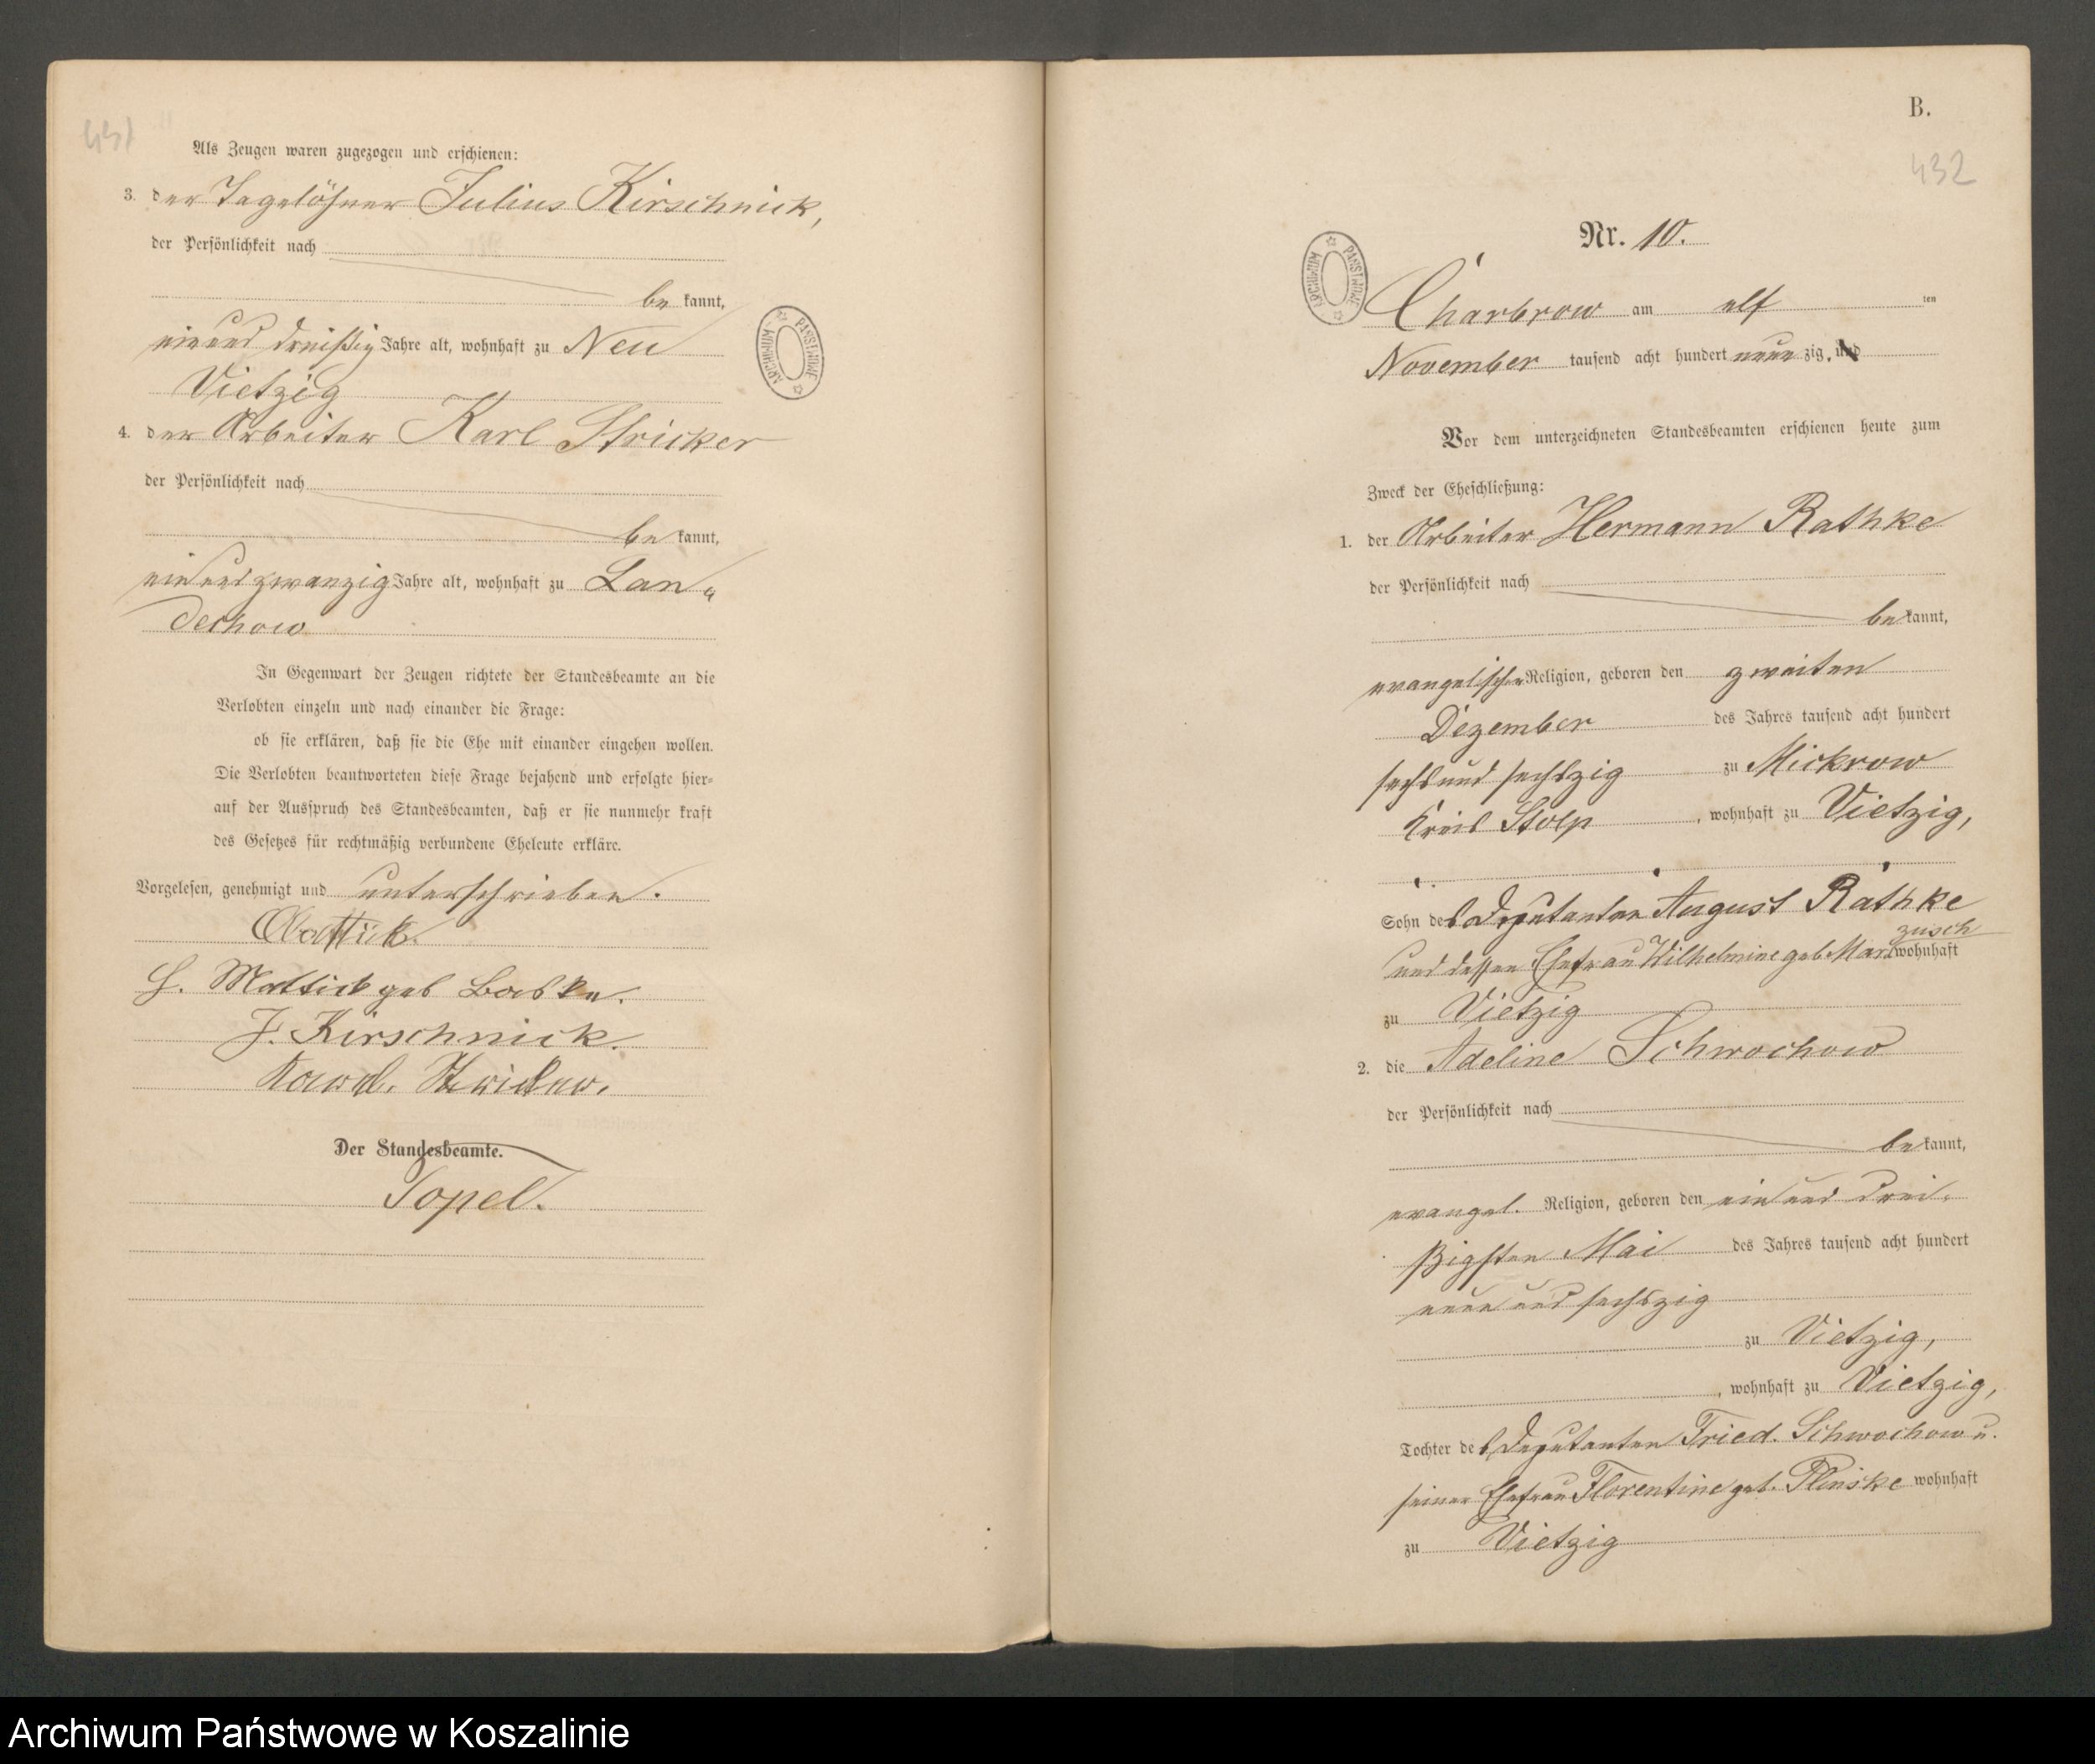 431
Als Zeugen waren zugezogen und erschienen:
3. der Tagelöhner Julius Kirschnick,
der Persönlichkeit nach
be kannt,
ein und dreißig Jahre alt, wohnhaft zu Neu
Vietzig
4. der Arbeiter Karl Stricker
der Persönlichkeit nach
be kannt,
ein und zwanzig Jahre alt, wohnhaft zu Lan„
dechow
In Gegenwart der Zeugen richtete der Standesbeamte an die
Verlobten einzeln und nach einander die Frage:
ob sie erklären, daß sie die Ehe mit einander eingehen wollen.
Die Verlobten beantworteten diese Frage bejahend und erfolgte hier-
auf der Ausspruch des Standesbeamten, daß er sie nunmehr kraft
des Gesetzes für rechtmäßig verbundene Eheleute erkläre.
Vorgelesen, genehmigt und unterschrieben.
Mattick geb
J. Kirschnick.
Der Standesbeamte.
Topel.
ARCHIWUM PAŃSTWOWE
B.
432
Nr. 10.
ARCHIWUM PAŃSTWOWE
Charbrow am elf ten
November tausend acht hundert neun zig. und
Vor dem unterzeichneten Standesbeamten erschienen heute zum
Zweck der Eheschließung:
1. der Arbeiter Hermann Rathke
der Persönlichkeit nach
be kannt,
evangelischer Religion, geboren den zweiten
Dezember des Jahres tausend acht hundert
sechs und sechszig zu Mickrow
Kreis Stolp, wohnhaft zu Vietzig,
Sohn des Deputanten August Rathke
zusch
und dessen Ehefrau Wilhelmine geb. Mar- wohnhaft
zu Vietzig
2. die Adeline Schwochow
der Persönlichkeit nach
be kannt,
evangel. Religion, geboren den ein und drei-
ßigsten Mai des Jahres tausend acht hundert
neun und sechszig
zu Vietzig,
, wohnhaft zu Vietzig,
Tochter des Deputanten Fried. Schwochow u.
seiner Ehefrau Florentine geb. Plinske wohnhaft
zu Vietzig
Archiwum Państwowe w Koszalinie